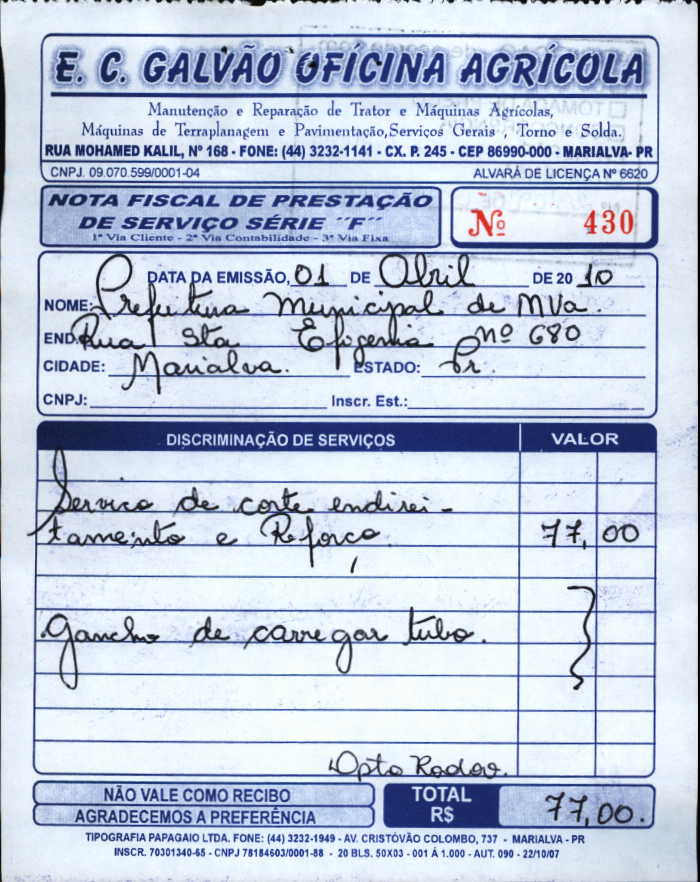 E. C. GALVÃO OFÍCINA AGRÍCOLA
Manutenção e Reparação de Trator e Máquinas Agrícolas,
Máquinas de Terraplanagem e Pavimentação, Serviços Gerais , Torno e Solda.
RUA MOHAMED KALIL, Nº 168 - FONE: (44) 3232-1141 - CX. P. 245 - CEP 86990-000 - MARIALVA- PR
CNPJ. 09.070.599/0001-04 ALVARÁ DE LICENÇA Nº 6620
NOTA FISCAL DE PRESTAÇÃO
DE SERVIÇO SÉRIE "F"
1ª Via Cliente - 2ª Via Contabilidade - 3ª Via Fixa
Nº 430
DATA DA EMISSÃO, 01 DE Abril DE 20 10
NOME: Prefeitura Municipal de MVa.
END. Rua Sta Efigenia nº 680
CIDADE: Marialva. ESTADO: Pr.
CNPJ: Inscr. Est.:
DISCRIMINAÇÃO DE SERVIÇOS VALOR
Serviço de corte endirei-
tamento e Reforço 77,00
Gancho de carregar tubo.
Dpto Rodov.
NÃO VALE COMO RECIBO
AGRADECEMOS A PREFERÊNCIA
TOTAL R$ 77,00.
TIPOGRAFIA PAPAGAIO LTDA. FONE: (44) 3232-1949 - AV. CRISTÓVÃO COLOMBO, 737 - MARIALVA - PR
INSCR. 70301340-65 - CNPJ 78184603/0001-88 - 20 BLS. 50X03 - 001 À 1.000 - AUT. 090 - 22/10/07